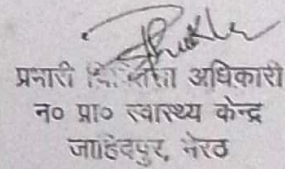 प्रभारी चिकित्सा अधिकारी
न० प्रा० स्वास्थ्य केन्द्र
जाहिदपुर, मेरठ